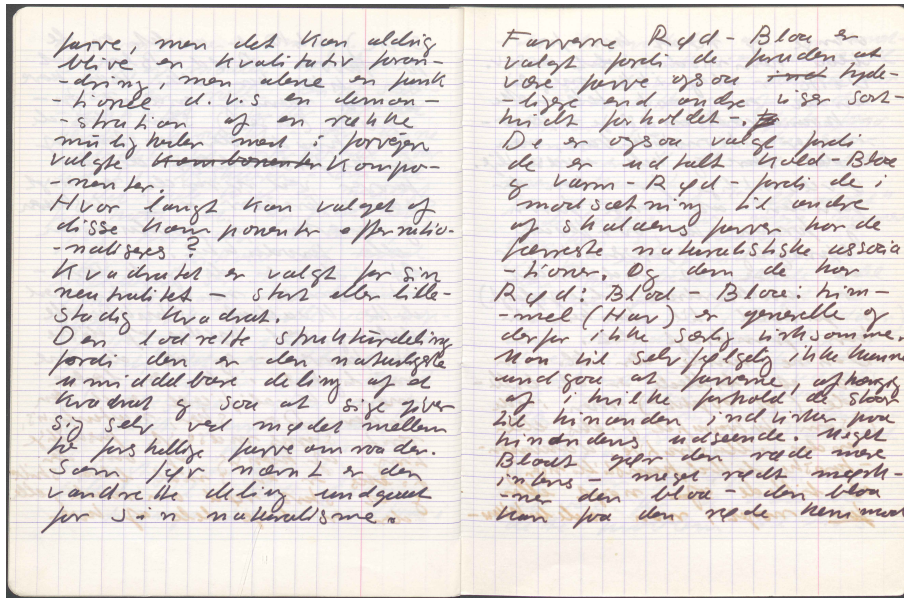 farve, men det kan aldrig
blive en kvalitativ foran-
-dring, men alene en funk
-tionel d.v.s en demon-
-stration af en række
muligheder med i forvejen
valgte Kombonenter Kompo-
-nenter.
Hvor langt kan valget af
disse komponenter efterratio-
-naliseres?
Kvadratet er valgt for sin
neutralitet - stort eller lille-
stadig kvadrat.
Den lodrette struktúrdeling
fordi den er den naturligste
umiddelbare deling af et
kvadrat og saa at sige giver
sig selv ved mødet mellem
to forskellige farveomraader.
Som før nævnt er den
vandrette deling undgaaet
for sin naturalisme.
Farverne Rød-Blaa er
valgt fordi de foruden at
være farve ogsaa tyde-
-ligere end andre siger sort-
hvidt forholdet-.
De er ogsaa valgt fordi
de er udtalt kold-Blaa
og varm-Rød-fordi de i
modsætning til andre
af skalaens farver har de
færreste naturalistiske associa
-tioner. Og dem de har
Rød: Blod - Blaa: him-
-mel (Hav) er generelle og
derfor ikke særlig virksomme.
Man vil selvfølgelig ikke kunne
undgaa at farverne, afhængig
af i hvilke forhold de staar
til hinanden indvirker paa
hinandens udseende. Meget
Blaat gør den røde mere
intens - meget rødt mørk-
-ner den blaa - den blaa
kan paa den røde henimod